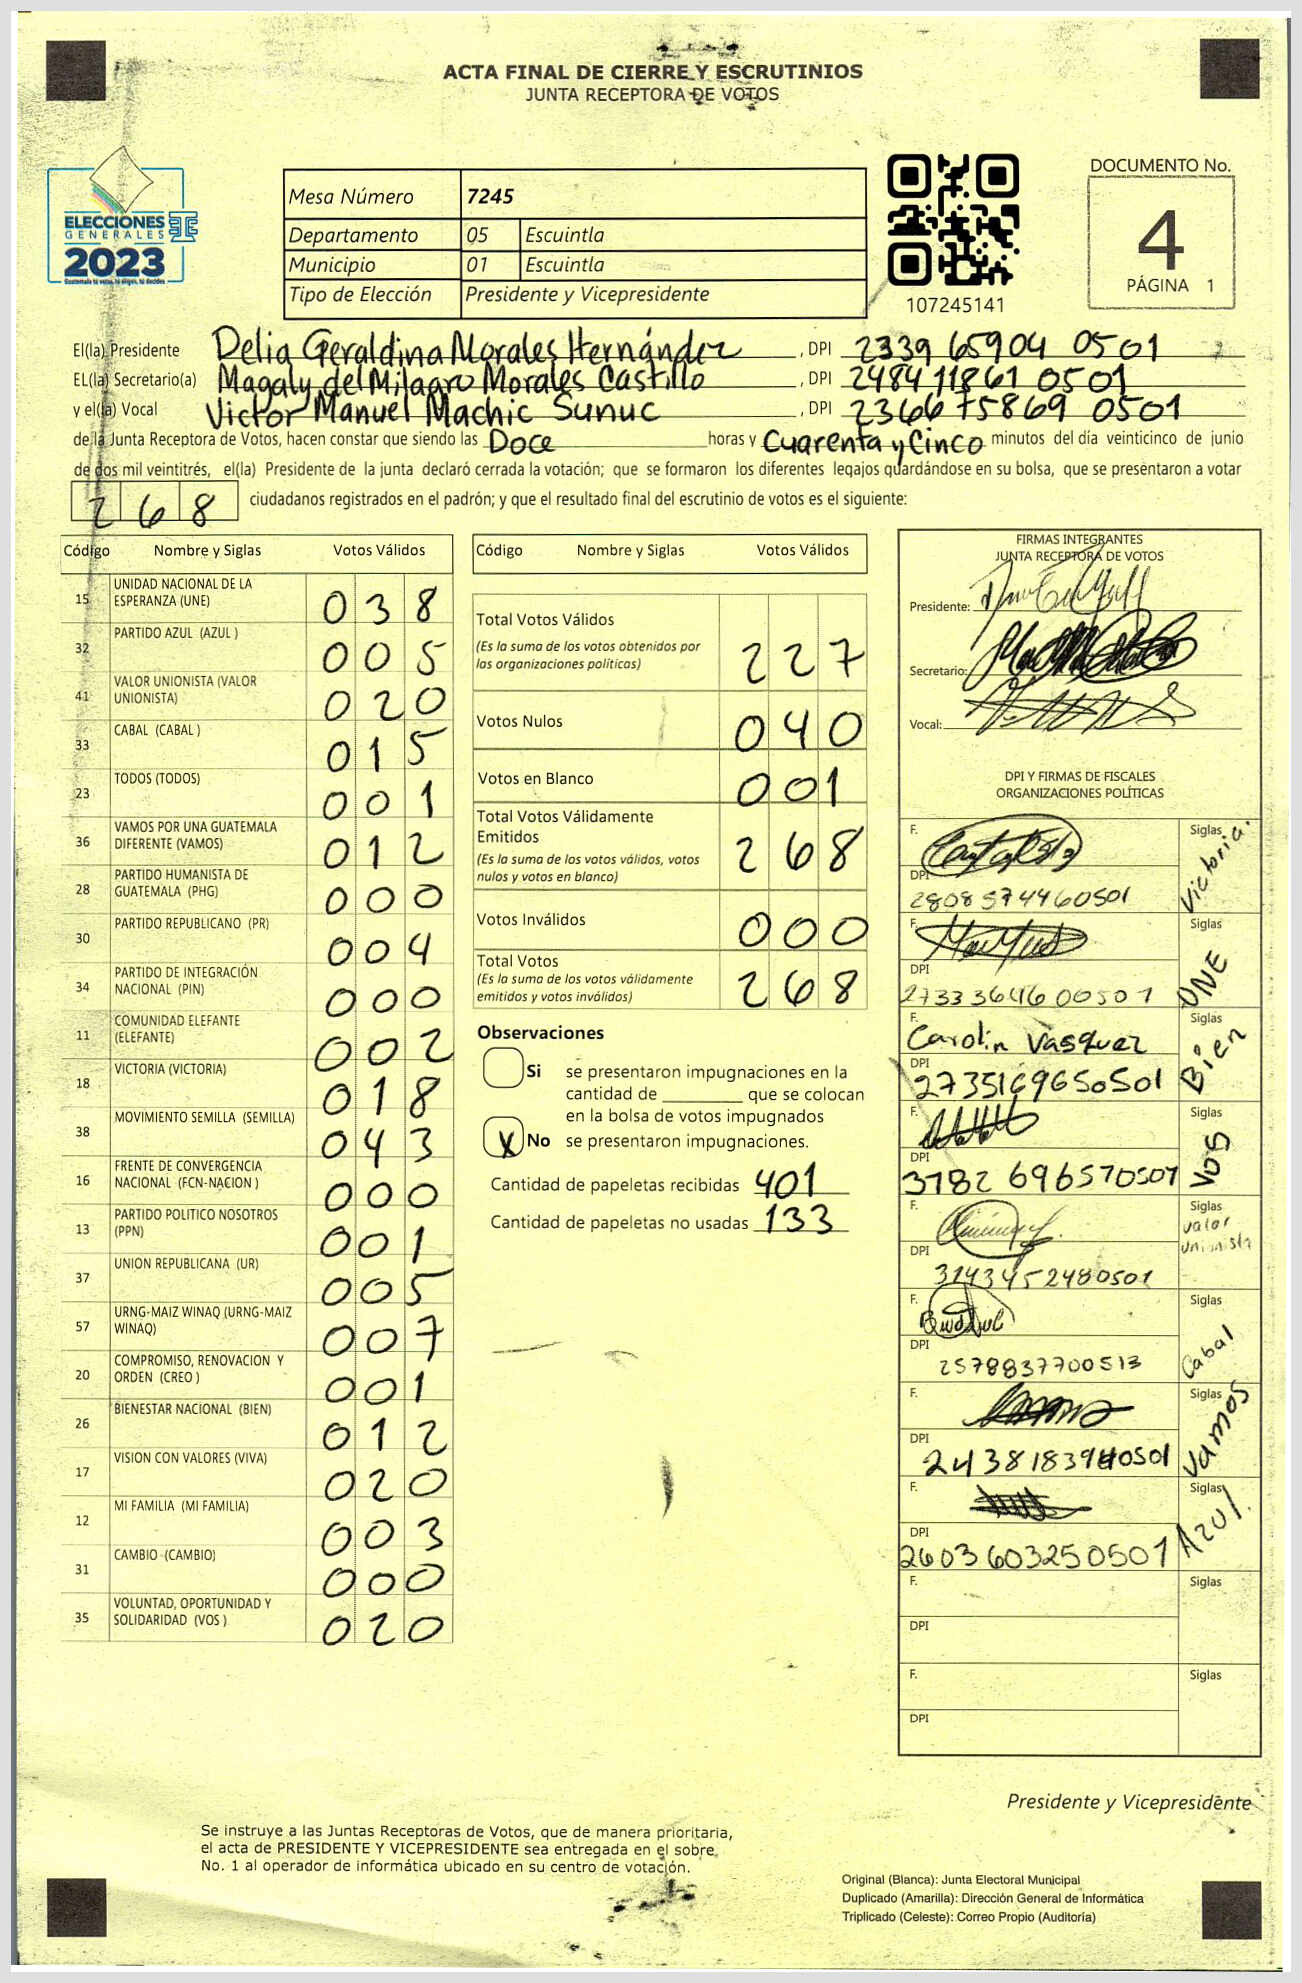 ACTA FINAL DE CIERRE Y ESCRUTINIOS
JUNTA RECEPTORA DE VOTOS
ELECCIONES
GENERALES
2023
Guatemala tú votas, tú eliges, tú decides
Mesa Número 7245
Departamento 05 Escuintla
Municipio 01 Escuintla
Tipo de Elección Presidente y Vicepresidente
107245141
DOCUMENTO No.
4
PÁGINA 1
El(la) Presidente Delia Geraldina Morales Hernández, DPI 2339 65904 0501
EL(la) Secretario(a) Magaly del Milagro Morales Castillo, DPI 2484 11861 0501
y el(la) Vocal Victor Manuel Machic Sunuc, DPI 2366 75869 0501
de la Junta Receptora de Votos, hacen constar que siendo las Doce horas y Cuarenta y Cinco minutos del día veinticinco de junio
de dos mil veintitrés, el(la) Presidente de la junta declaró cerrada la votación; que se formaron los diferentes legajos guardándose en su bolsa, que se presentaron a votar
268 ciudadanos registrados en el padrón; y que el resultado final del escrutinio de votos es el siguiente:
Código Nombre y Siglas Votos Válidos
15 UNIDAD NACIONAL DE LA ESPERANZA (UNE) 038
32 PARTIDO AZUL (AZUL ) 005
41 VALOR UNIONISTA (VALOR UNIONISTA) 020
33 CABAL (CABAL ) 015
23 TODOS (TODOS) 001
36 VAMOS POR UNA GUATEMALA DIFERENTE (VAMOS) 012
28 PARTIDO HUMANISTA DE GUATEMALA (PHG) 000
30 PARTIDO REPUBLICANO (PR) 004
34 PARTIDO DE INTEGRACIÓN NACIONAL (PIN) 000
11 COMUNIDAD ELEFANTE (ELEFANTE) 002
18 VICTORIA (VICTORIA) 018
38 MOVIMIENTO SEMILLA (SEMILLA) 043
16 FRENTE DE CONVERGENCIA NACIONAL (FCN-NACION ) 000
13 PARTIDO POLITICO NOSOTROS (PPN) 001
37 UNION REPUBLICANA (UR) 005
57 URNG-MAIZ WINAQ (URNG-MAIZ WINAQ) 007
20 COMPROMISO, RENOVACION Y ORDEN (CREO ) 001
26 BIENESTAR NACIONAL (BIEN) 012
17 VISION CON VALORES (VIVA) 020
12 MI FAMILIA (MI FAMILIA) 003
31 CAMBIO (CAMBIO) 000
35 VOLUNTAD, OPORTUNIDAD Y SOLIDARIDAD (VOS ) 020
Código Nombre y Siglas Votos Válidos
Total Votos Válidos 227
(Es la suma de los votos obtenidos por
las organizaciones políticas)
Votos Nulos 040
Votos en Blanco 001
Total Votos Válidamente
Emitidos 268
(Es la suma de los votos válidos, votos
nulos y votos en blanco)
Votos Inválidos 000
Total Votos 268
(Es la suma de los votos válidamente
emitidos y votos inválidos)
Observaciones
Si se presentaron impugnaciones en la
cantidad de ________ que se colocan
en la bolsa de votos impugnados
X No se presentaron impugnaciones.
Cantidad de papeletas recibidas 401
Cantidad de papeletas no usadas 133
FIRMAS INTEGRANTES
JUNTA RECEPTORA DE VOTOS
Presidente:
Secretario:
Vocal:
DPI Y FIRMAS DE FISCALES
ORGANIZACIONES POLÍTICAS
F. Siglas Victoria.
DPI 2808574460501
F. Siglas UNE
DPI 2733364600501
F. Carolin Vasquez Siglas Bien
DPI 2735169650501
F. Siglas VOS
DPI 3782 696570501
F. Siglas Valor Unionista
DPI 3143452480501
F. Siglas Cabal
DPI 2578837700513
F. Siglas Vamos
DPI
F. Siglas Azul.
DPI 2603603250501
F. Siglas
DPI
F. Siglas
DPI
Presidente y Vicepresidente
Se instruye a las Juntas Receptoras de Votos, que de manera prioritaria,
el acta de PRESIDENTE Y VICEPRESIDENTE sea entregada en el sobre
No. 1 al operador de informática ubicado en su centro de votación.
Original (Blanca): Junta Electoral Municipal
Duplicado (Amarilla): Dirección General de Informática
Triplicado (Celeste): Correo Propio (Auditoría)